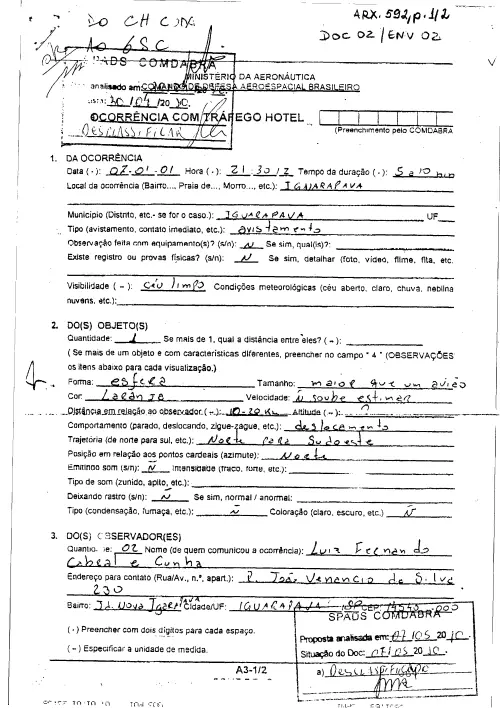 ARX. 592, p. 1/2
DO CH CODA
DOC 02 / ENV 02
AO 6SC
SPADS COMDABRA
MINISTÉRIO DA AERONÁUTICA
analisado em:
COMANDO DE DEFESA AEROESPACIAL BRASILEIRO
OCORRÊNCIA COM TRÁFEGO HOTEL
DESCLASSIFICAR
(Preenchimento pelo COMDABRA
1. DA OCORRÊNCIA
Data (-): 07-01-01 Hora (-): 21:30 / Z Tempo da duração (-): 5 a 10 min
Local da ocorrência (Bairro..., Praia de..., Morro..., etc.): IGUARAPAVA
Município (Distrito, etc.- se for o caso.): IGUARAPAVA UF
Tipo (avistamento, contato imediato, etc.): avistamento
Observação feita com equipamento(s)? (s/n): N Se sim, qual(is)?:
Existe registro ou provas físicas? (s/n): N Se sim, detalhar (foto, vídeo, filme, fita, etc.
Visibilidade (~): céu limpo Condições meteorológicas (céu aberto, claro, chuva, neblina
nuvens, etc.):
2. DO(S) OBJETO(S)
Quantidade: 1 Se mais de 1, qual a distância entre eles? (~):
( Se mais de um objeto e com características diferentes, preencher no campo " 4 " (OBSERVAÇÕES
os itens abaixo para cada visualização.)
Forma: esfera Tamanho: maior que um avião
Cor: Laranja Velocidade: ñ soube estimar
Distância em relação ao observador (~): 10-20 Km Altitude (~): ?
Comportamento (parado, deslocando, zigue-zague, etc.): deslocamento
Trajetória (de norte para sul, etc.): Norte para Sudoeste
Posição em relação aos pontos cardeais (azimute): Norte
Emitindo som (s/n): Ñ Intensidade (fraco, forte, etc.):
Tipo de som (zunido, apito, etc.):
Deixando rastro (s/n): Ñ Se sim, normal / anormal:
Tipo (condensação, fumaça, etc.): Ñ Coloração (claro, escuro, etc.) Ñ
3. DO(S) OBSERVADOR(ES)
02 Nome (de quem comunicou a ocorrência): Luiz Fernando
Cabral e Cunha
Endereço para contato (Rua/Av., n.º, apart.): R. João Venancio da Silva
230
Bairro: Jd. Nova Cidade/UF: IGUARAPAVA SP CEP:
(-) Preencher com dois dígitos para cada espaço.
(~) Especificar a unidade de medida.
SPADS COMDABRA
Proposta analisada em: 07/05 20 10
Situação do Doc: 07/05 20 10
a) Desclassificado
A3-1/2